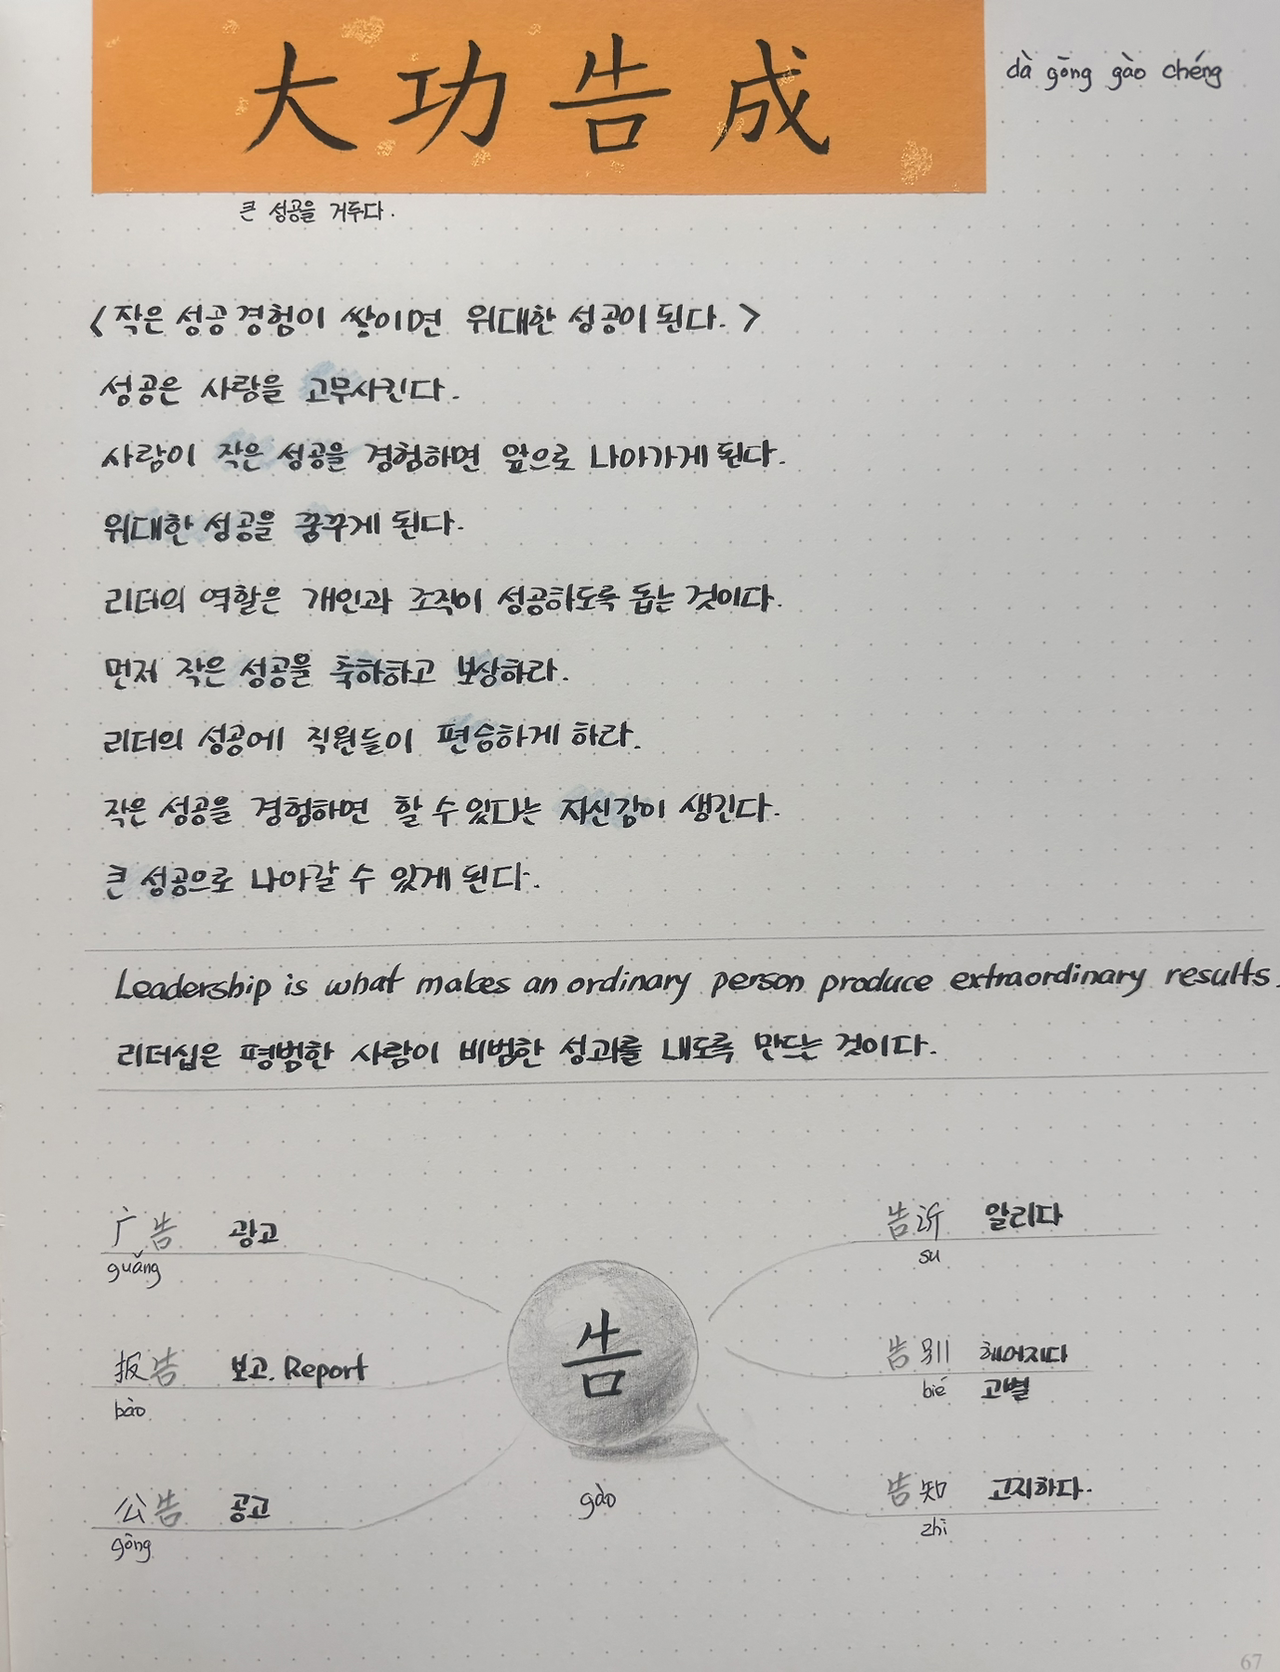 大功告成
dà gōng gào chéng
큰 성공을 거두다.
<작은 성공 경험이 쌓이면 위대한 성공이 된다.>
성공은 사람을 고무시킨다.
사람이 작은 성공을 경험하면 앞으로 나아가게 된다.
위대한 성공을 꿈꾸게 된다.
리더의 역할은 개인과 조직이 성공하도록 돕는 것이다.
먼저 작은 성공을 축하하고 보상하라.
리더의 성공에 직원들이 편승하게 하라.
작은 성공을 경험하면 할 수 있다는 자신감이 생긴다.
큰 성공으로 나아갈 수 있게 된다.
Leadership is what makes an ordinary person produce extraordinary results.
리더십은 평범한 사람이 비범한 성과를 내도록 만드는 것이다.
广告 광고
guǎng
报告 보고. Report
bào
公告 공고
gōng
告
gào
告诉 알리다
su
告别 헤어지다
bié 고별
告知 고지하다.
zhī
67